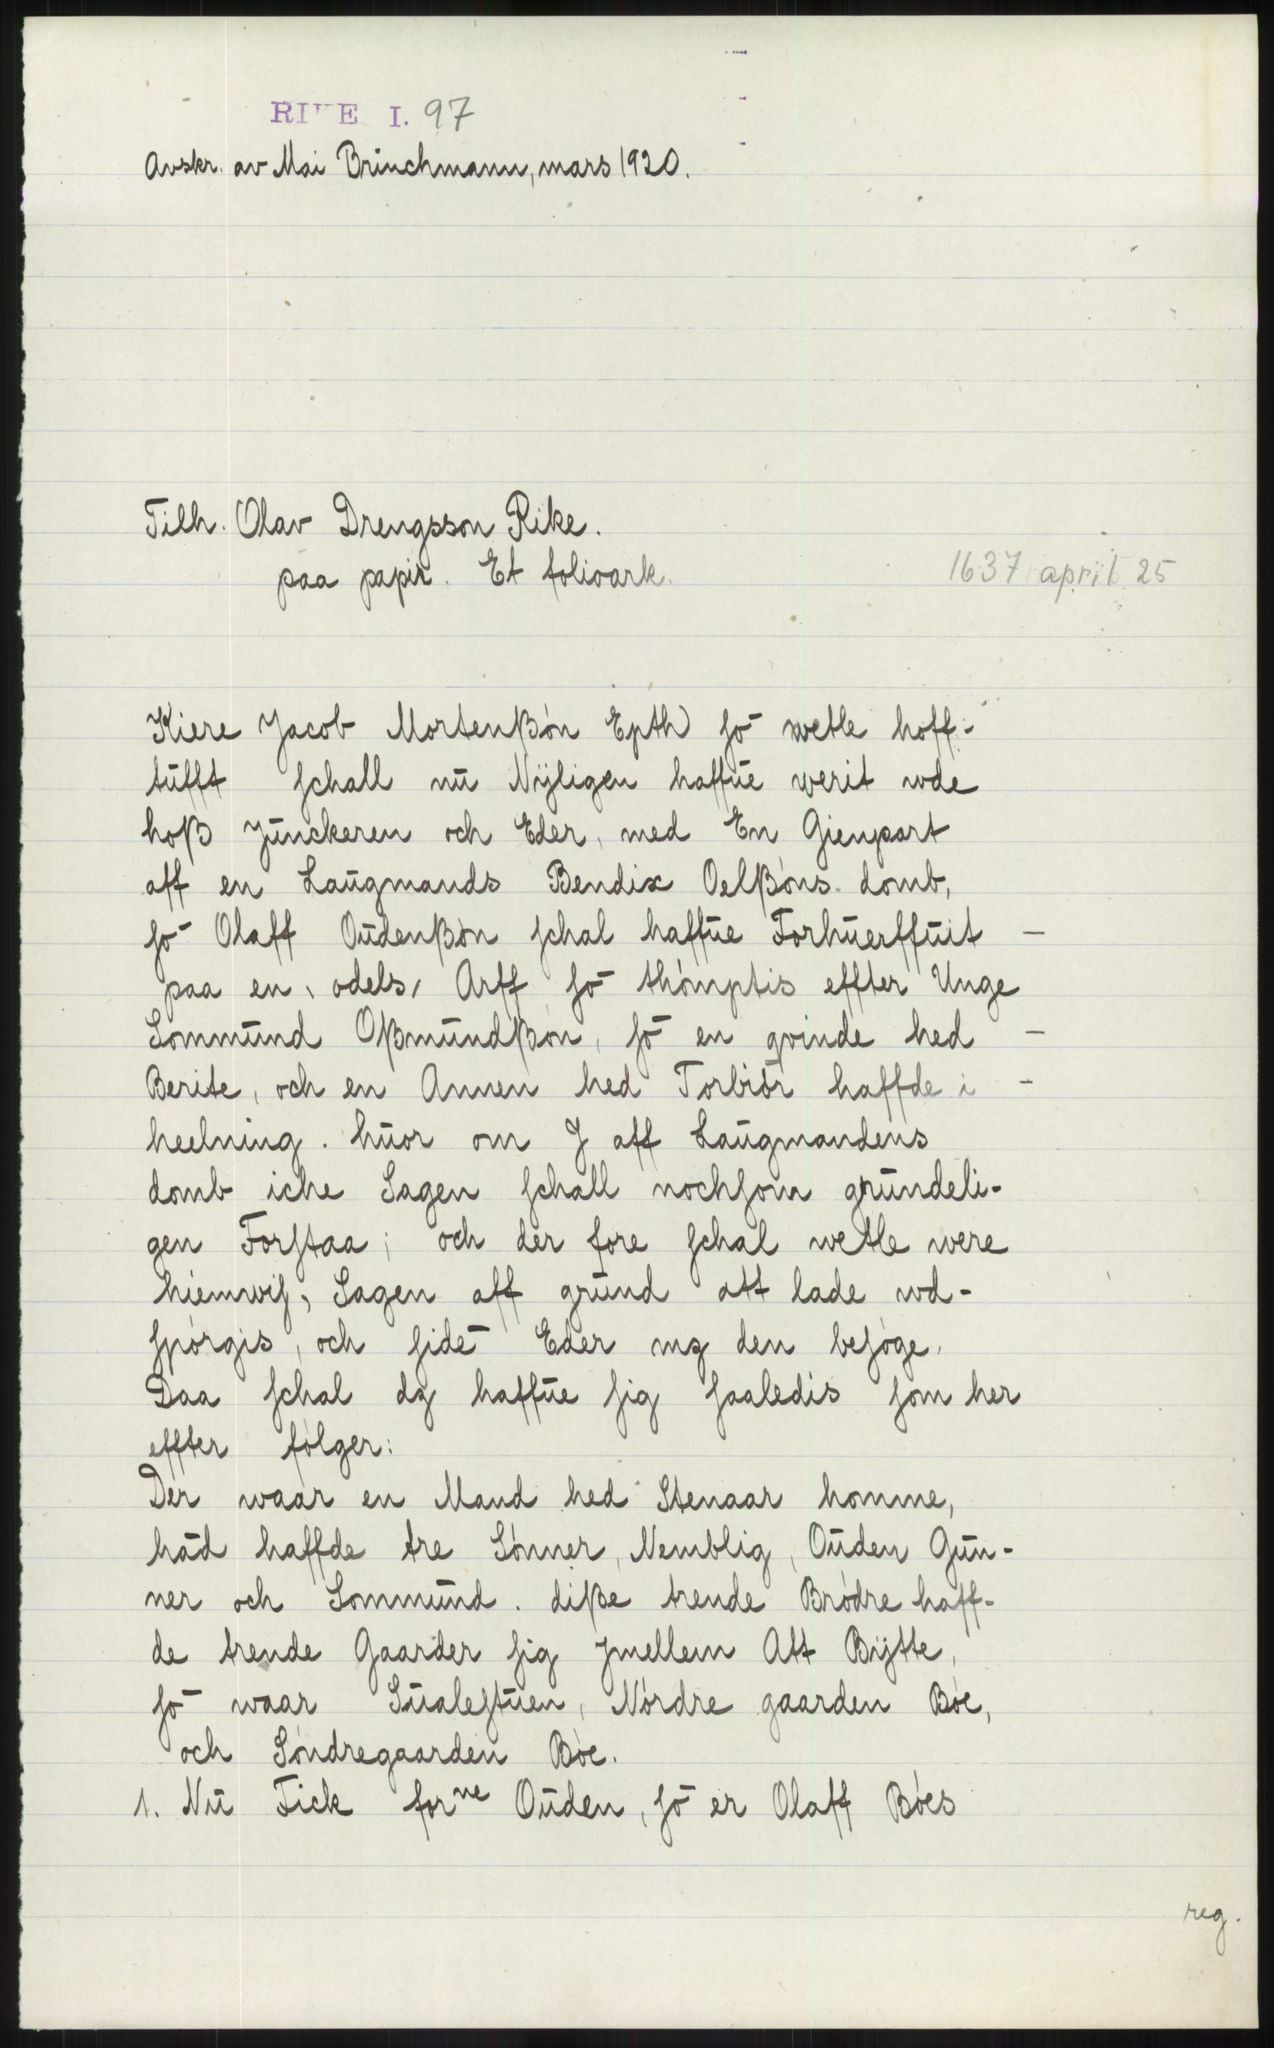 RIKE I. 97
Avskr. av Mai Brinchmann, mars 1920.
Tilh. Olav Drengsson Rike.
paa papir. Et folioark.
1637 april 25
Kiere Jacob Mortenßøn Epth) ſō wetle hoff-
tŭfft ſchall nŭ Nÿligen haffŭe werit wde
hoß Jŭnckeren och Eder, med En Gienpart
aff en Laŭgmands Bendix Oelßøns domb,
ſō Olaff Oŭdenßøn ſchal haffŭe Forhŭerffŭit –
paa en, odels, Arff ſō thømptis effter Unge
Sommŭnd Oßmŭndßøn, ſō en qvinde hed –
Berite, och en Annen hed Torbiør haffde i –
heelning. hŭor om J aff Laŭgmandens
domb iche Sagen ſchall nochſom grŭndeli-
gen Forſtaa; och der fore ſchal wetle were
hiemwiſ, Sagen aff grŭnd att lade wd-
ſpørgis, och ſidē Eder mʒ den beſøge.
Daa ſchal dʒ haffŭe ſig ſaaledis ſom her
effter følger:
Der waar en Mand hed Stenaar homme,
hād haffde tre Sønner, Nemblig, Oŭden Gŭn-
ner och Sommŭnd. diße trende Brødre haff-
de trende Gaarder ſig Jmellem Att Bÿtte,
ſō waar Sŭaleſtŭen, Nørdre gaarden Bøe,
och Søndregaarden Bøe.
1. Nŭ Fick forne Oŭden, ſō er Olaff Bøes
reg.